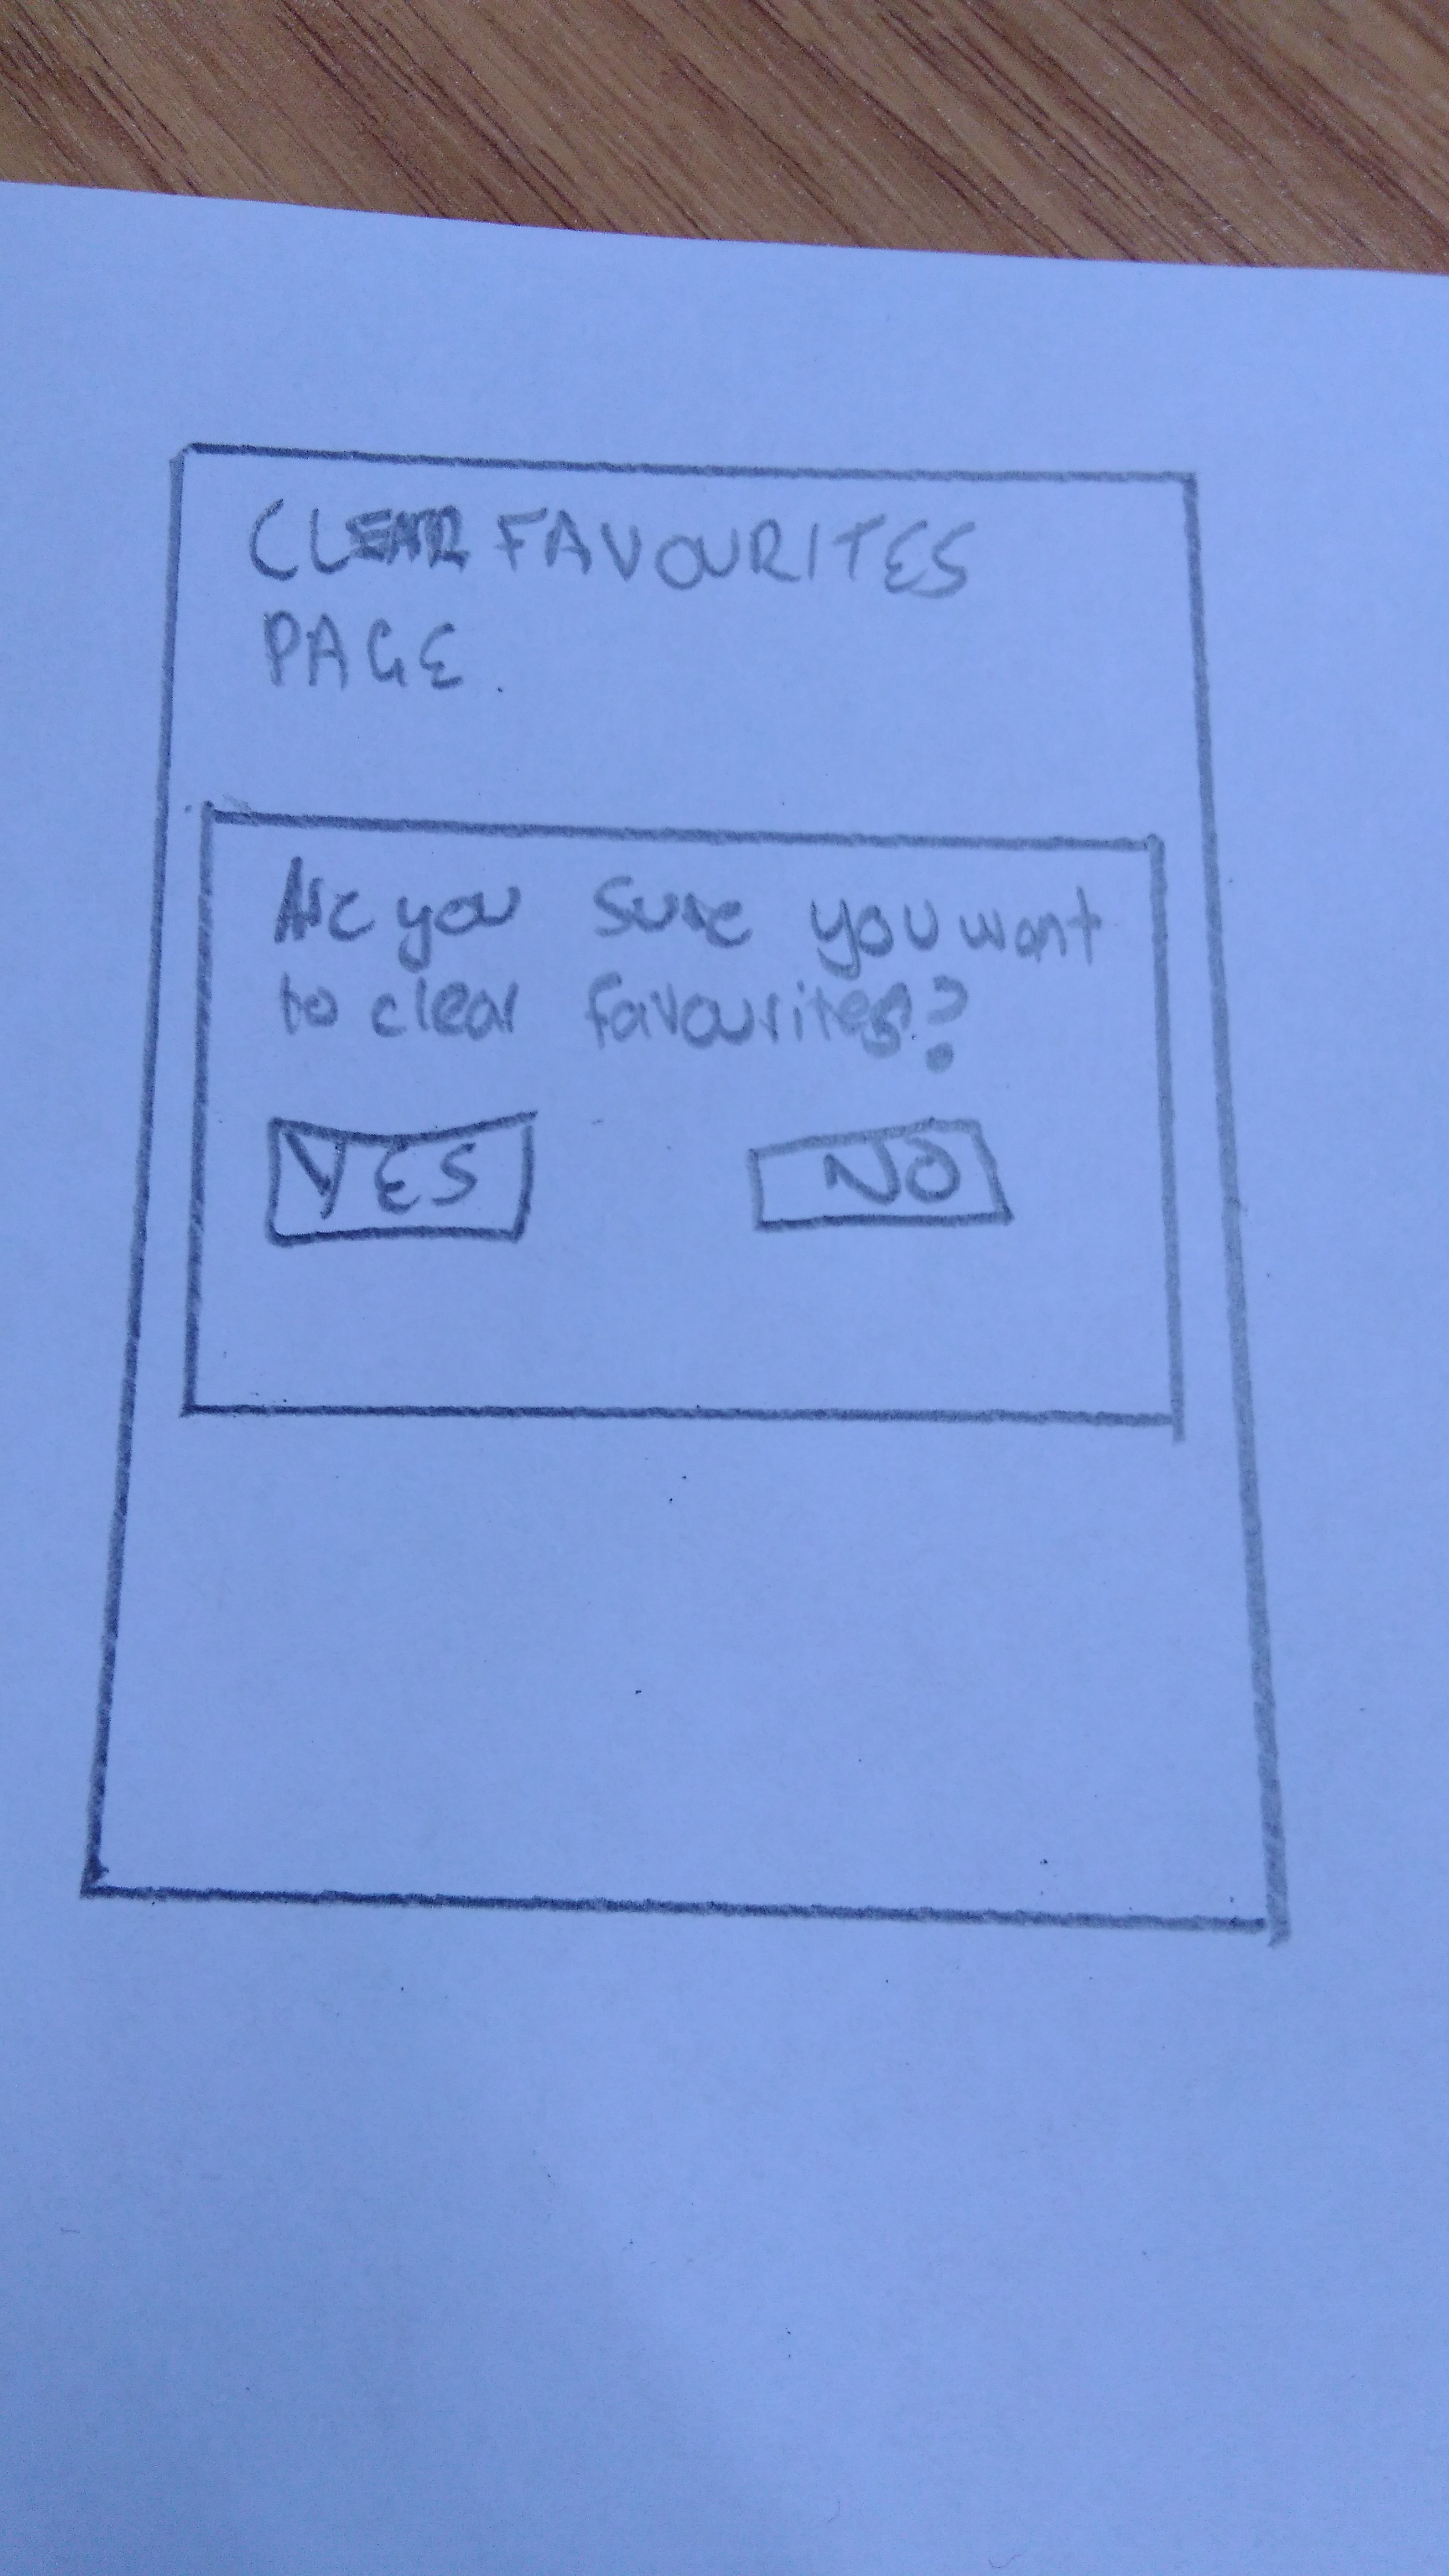 CLEAR FAVOURITES
PAGE.
Are you sure you want
to clear favourites?
YES
NO